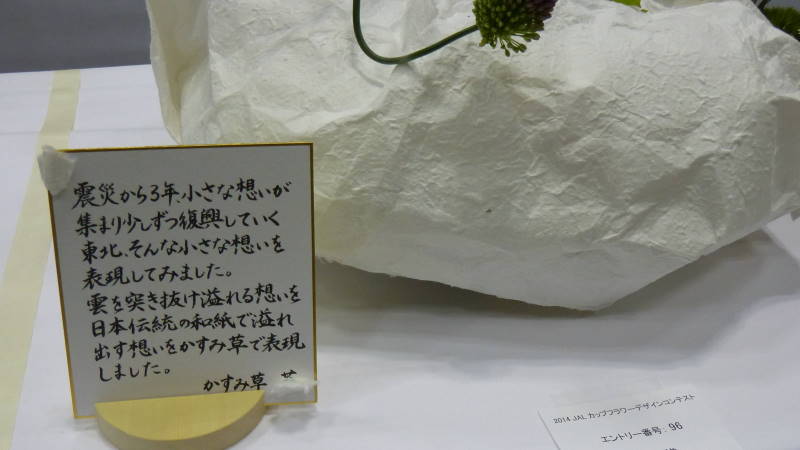 震災から3年、小さな想いが
集まり少しずつ復興していく
東北、そんな小さな想いを
表現してみました。
雲を突き抜け溢れる想いを
日本伝統の和紙で溢れ
出す想いをかすみ草で表現
しました。
かすみ草
2014 JAL カップフラワーデザインコンテスト
エントリー番号: 96